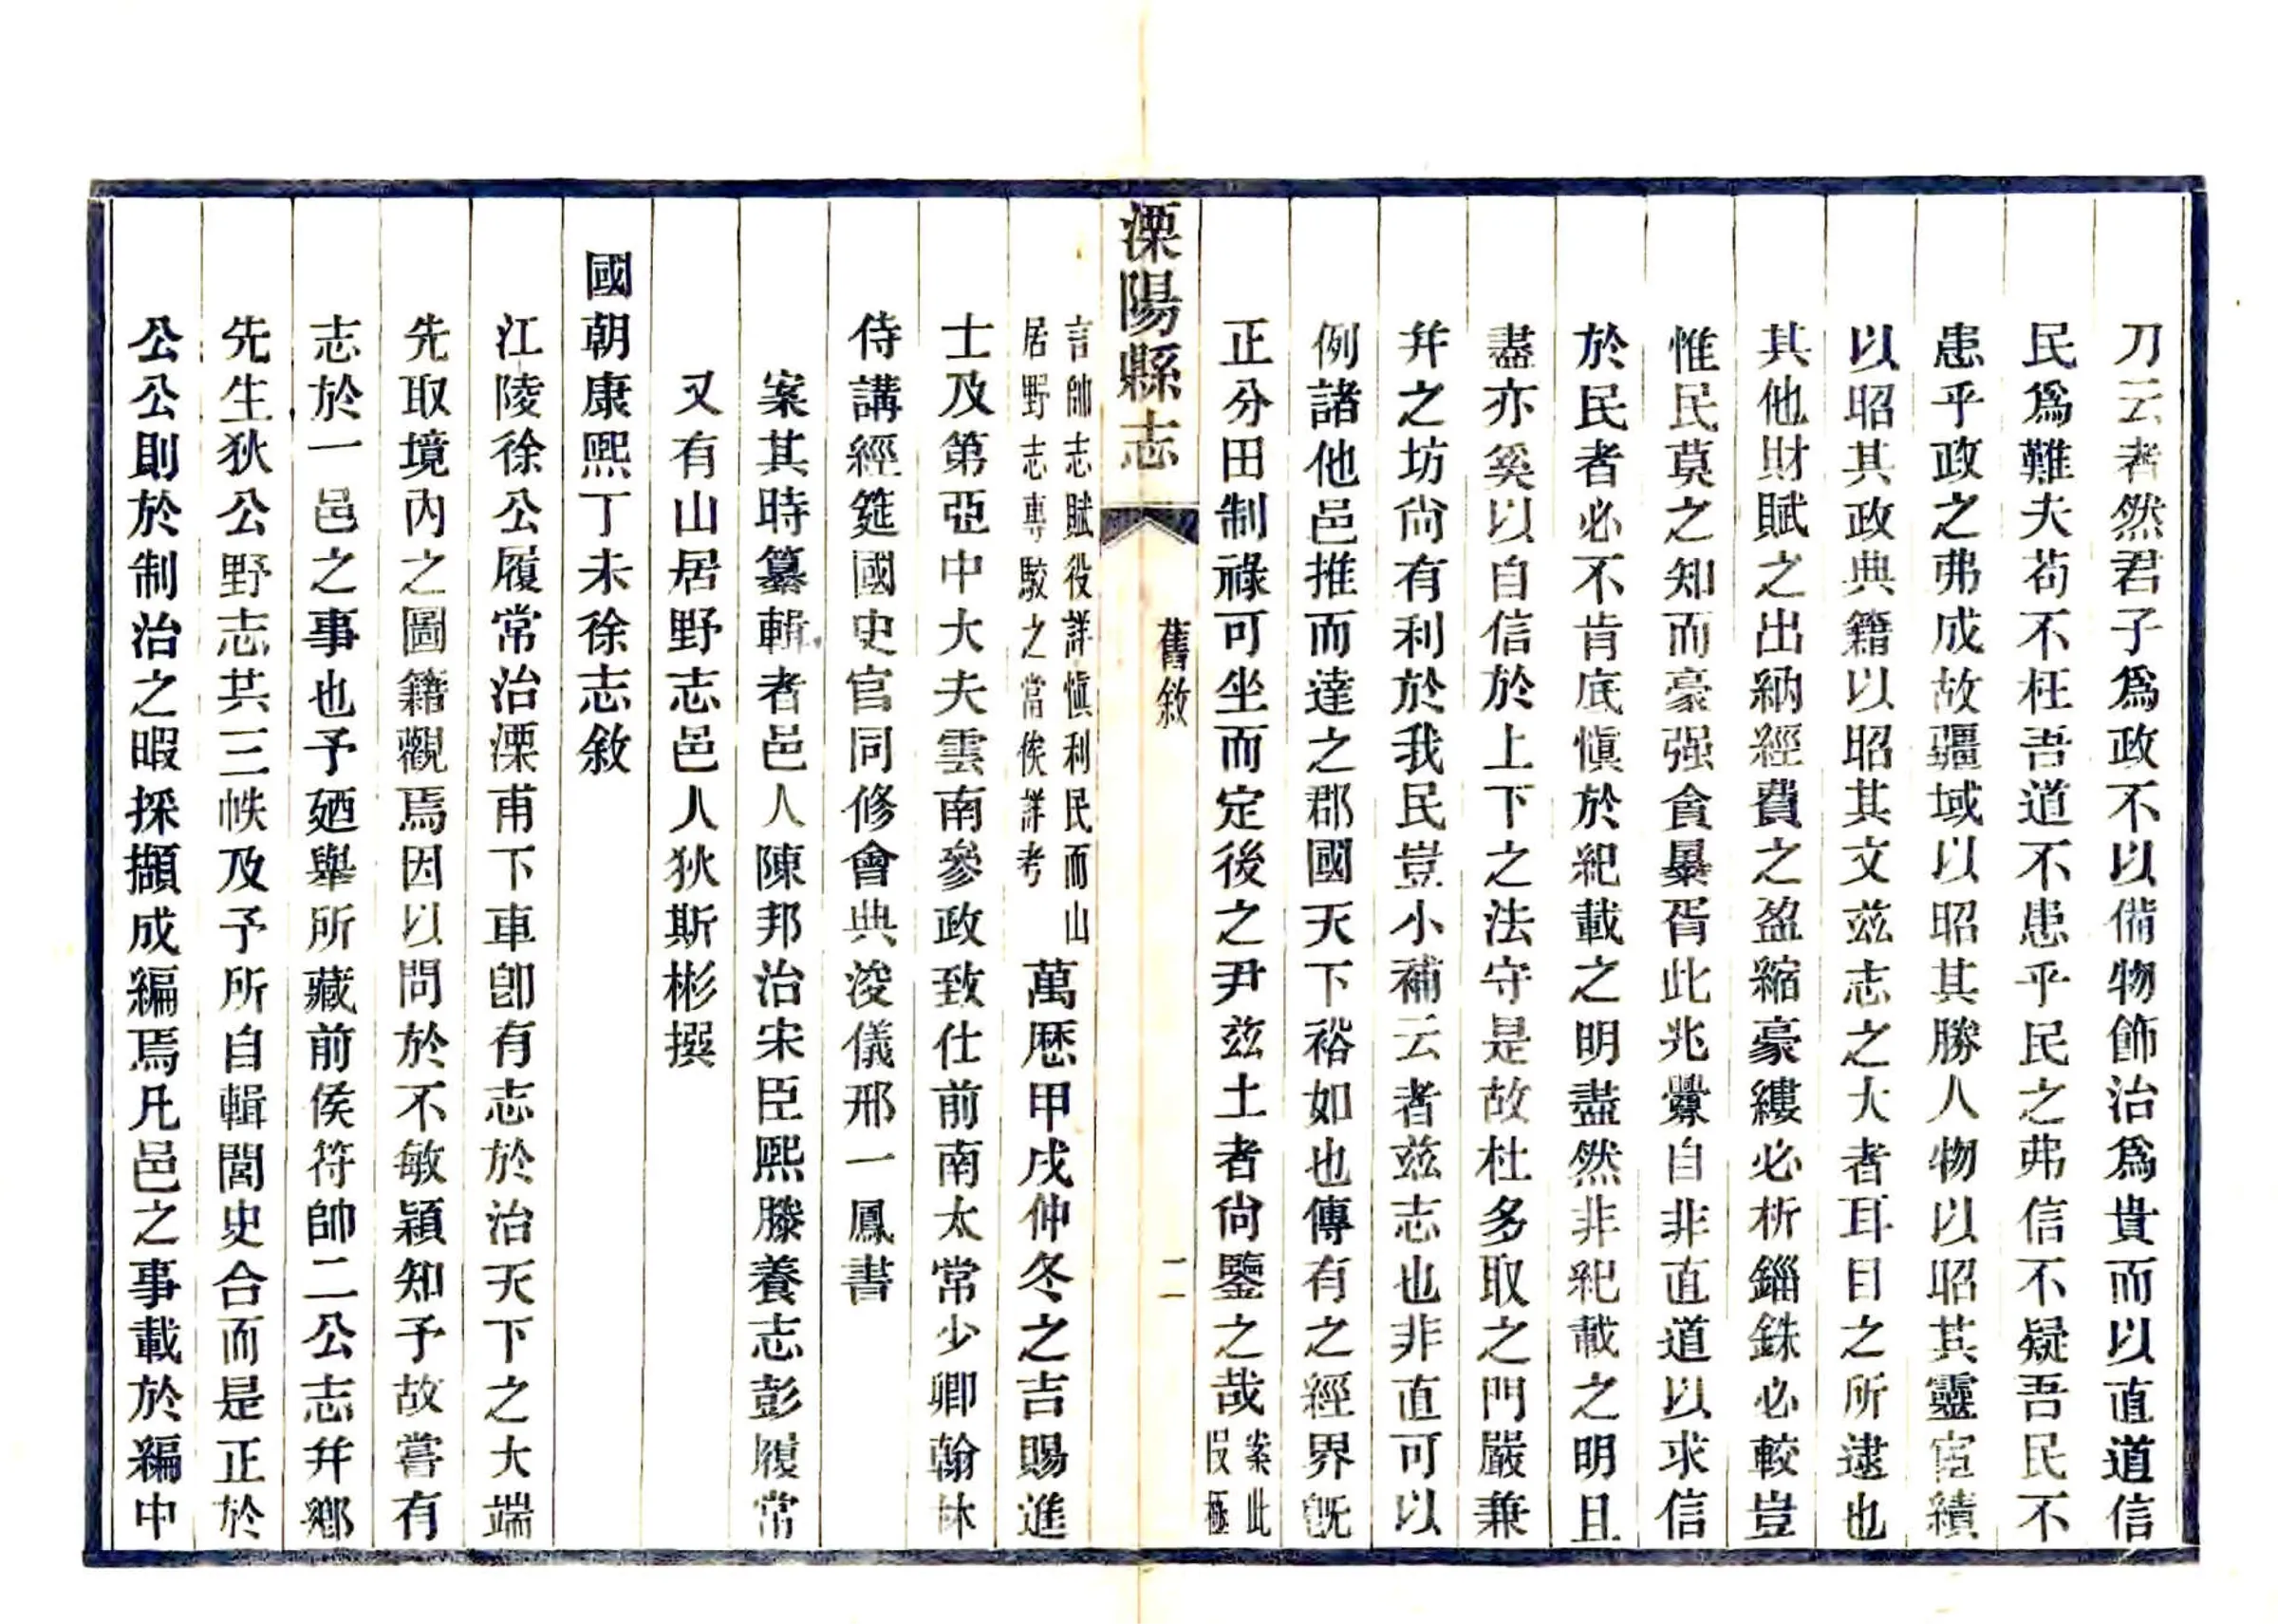 刀云者然君子爲政不以備物飾治爲貴而以直道信
民爲難夫苟不枉吾道不患乎民之弗信不疑吾民不
患乎政之弗成故疆域以昭其勝人物以昭其靈宦績
以昭其政典籍以昭其文茲志之大者耳目之所逮也
其他財賦之出納經費之盈縮豪縷必析錙銖必較豈
惟民莫之知而豪强貪暴胥此兆釁自非直道以求信
於民者必不肯底愼於紀載之明盡然非紀載之明且
盡亦奚以自信於上下之法守是故杜多取之門嚴兼
幷之坊尙有利於我民豈小補云者茲志也非直可以
例諸他邑推而達之郡國天下裕如也傳有之經界旣
正分田制祿可坐而定後之尹茲土者尙鑒之哉
案此
段極
溧陽縣志
舊敘
二
言帥志賦役詳愼利民而山
居野志專駮之當俟詳考
萬厯甲戌仲冬之吉賜進
士及第亞中大夫雲南參政致仕前南太常少卿翰林
侍講經筵國史官同修會典浚儀邢一鳳書
案其時纂輯者邑人陳邦治宋臣熙滕養志彭履常
又有山居野志邑人狄斯彬撰
國朝康熙丁未徐志敘
江陵徐公履常治溧甫下車卽有志於治天下之大端
先取境內之圖籍觀焉因以問於不敏穎知予故嘗有
志於一邑之事也予廼舉所藏前侯符帥二公志幷鄉
先生狄公野志共三帙及予所自輯閭史合而是正於
公公則於制治之暇採擷成編焉凡邑之事載於編中